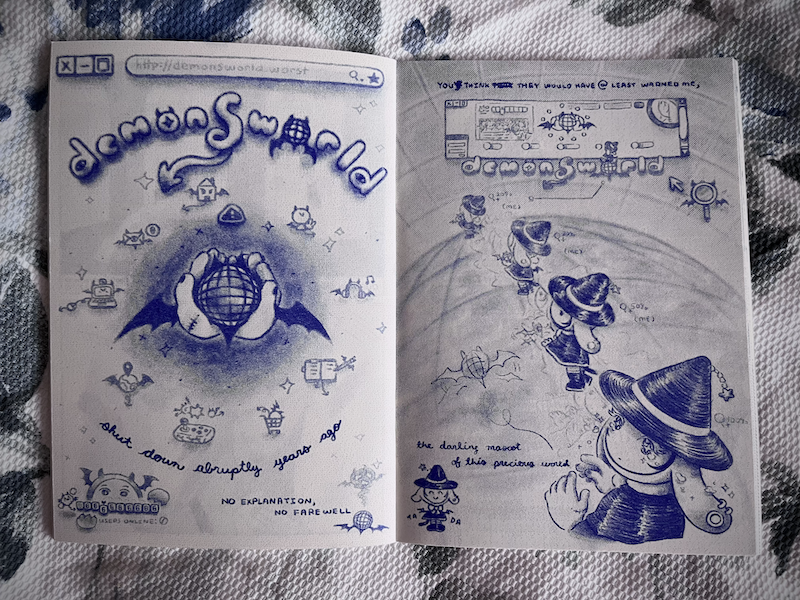 http://demonsworld.worst
demonSworld
shut down abruptly years ago
NO EXPLANATION,
NO FAREWELL
USERS ONLINE:
YOU'D THINK THEY WOULD HAVE @ LEAST WARNED ME,
demonSworld
(me)
(me)
(me)
the darling mascot
of this precious world